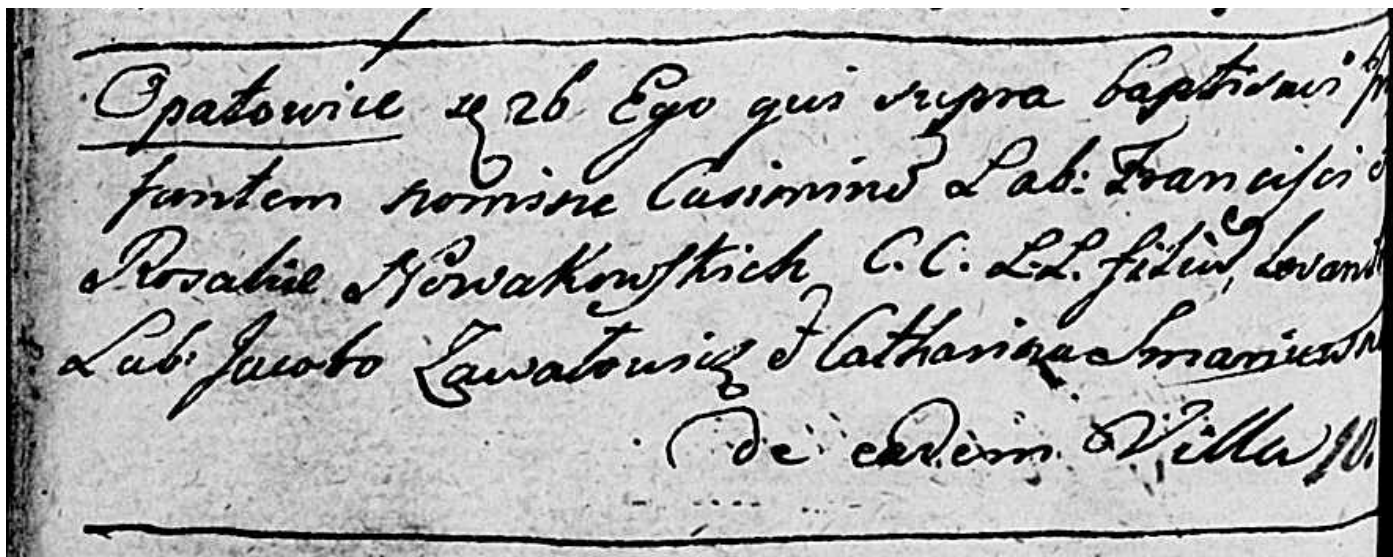 Opatowice 26 Ego qui supra baptisavi
fantem nomine Casimirũ Lab: Francisci
Rosaliæ Nowakowskich C. C. L.L. filiũ, Levan
Lab: Jacobo Zawałowicz & Catharina
de eadem Villa 10.